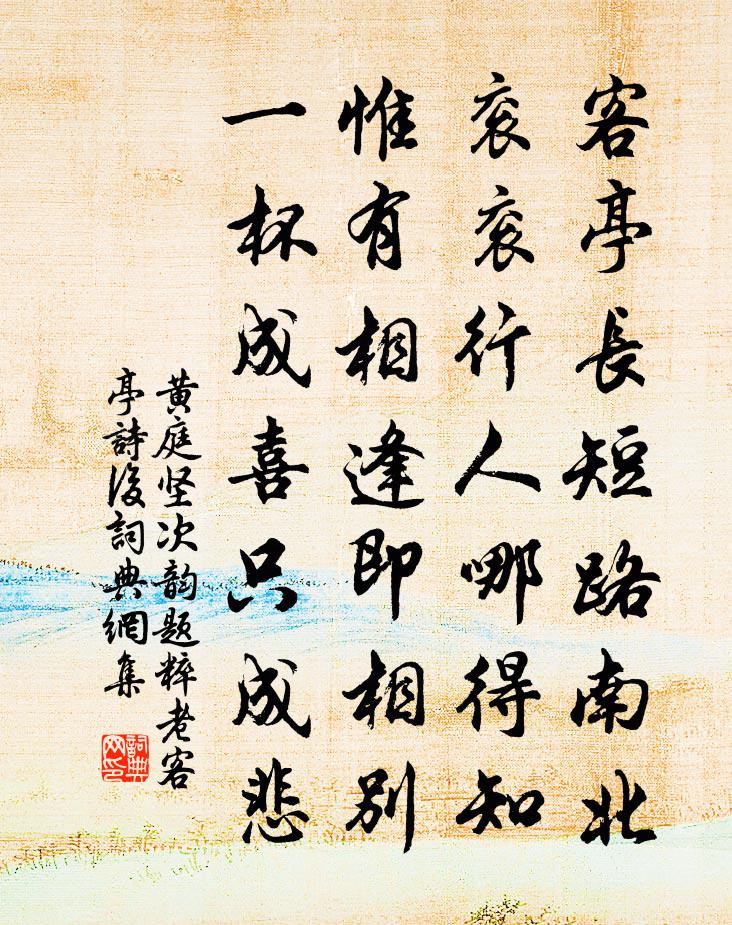 客亭長短路南北
衮衮行人哪得知
惟有相逢即相別
一杯成喜只成悲
黄庭坚次韵题粹老客
亭詩後詞典網集
詞典
网印